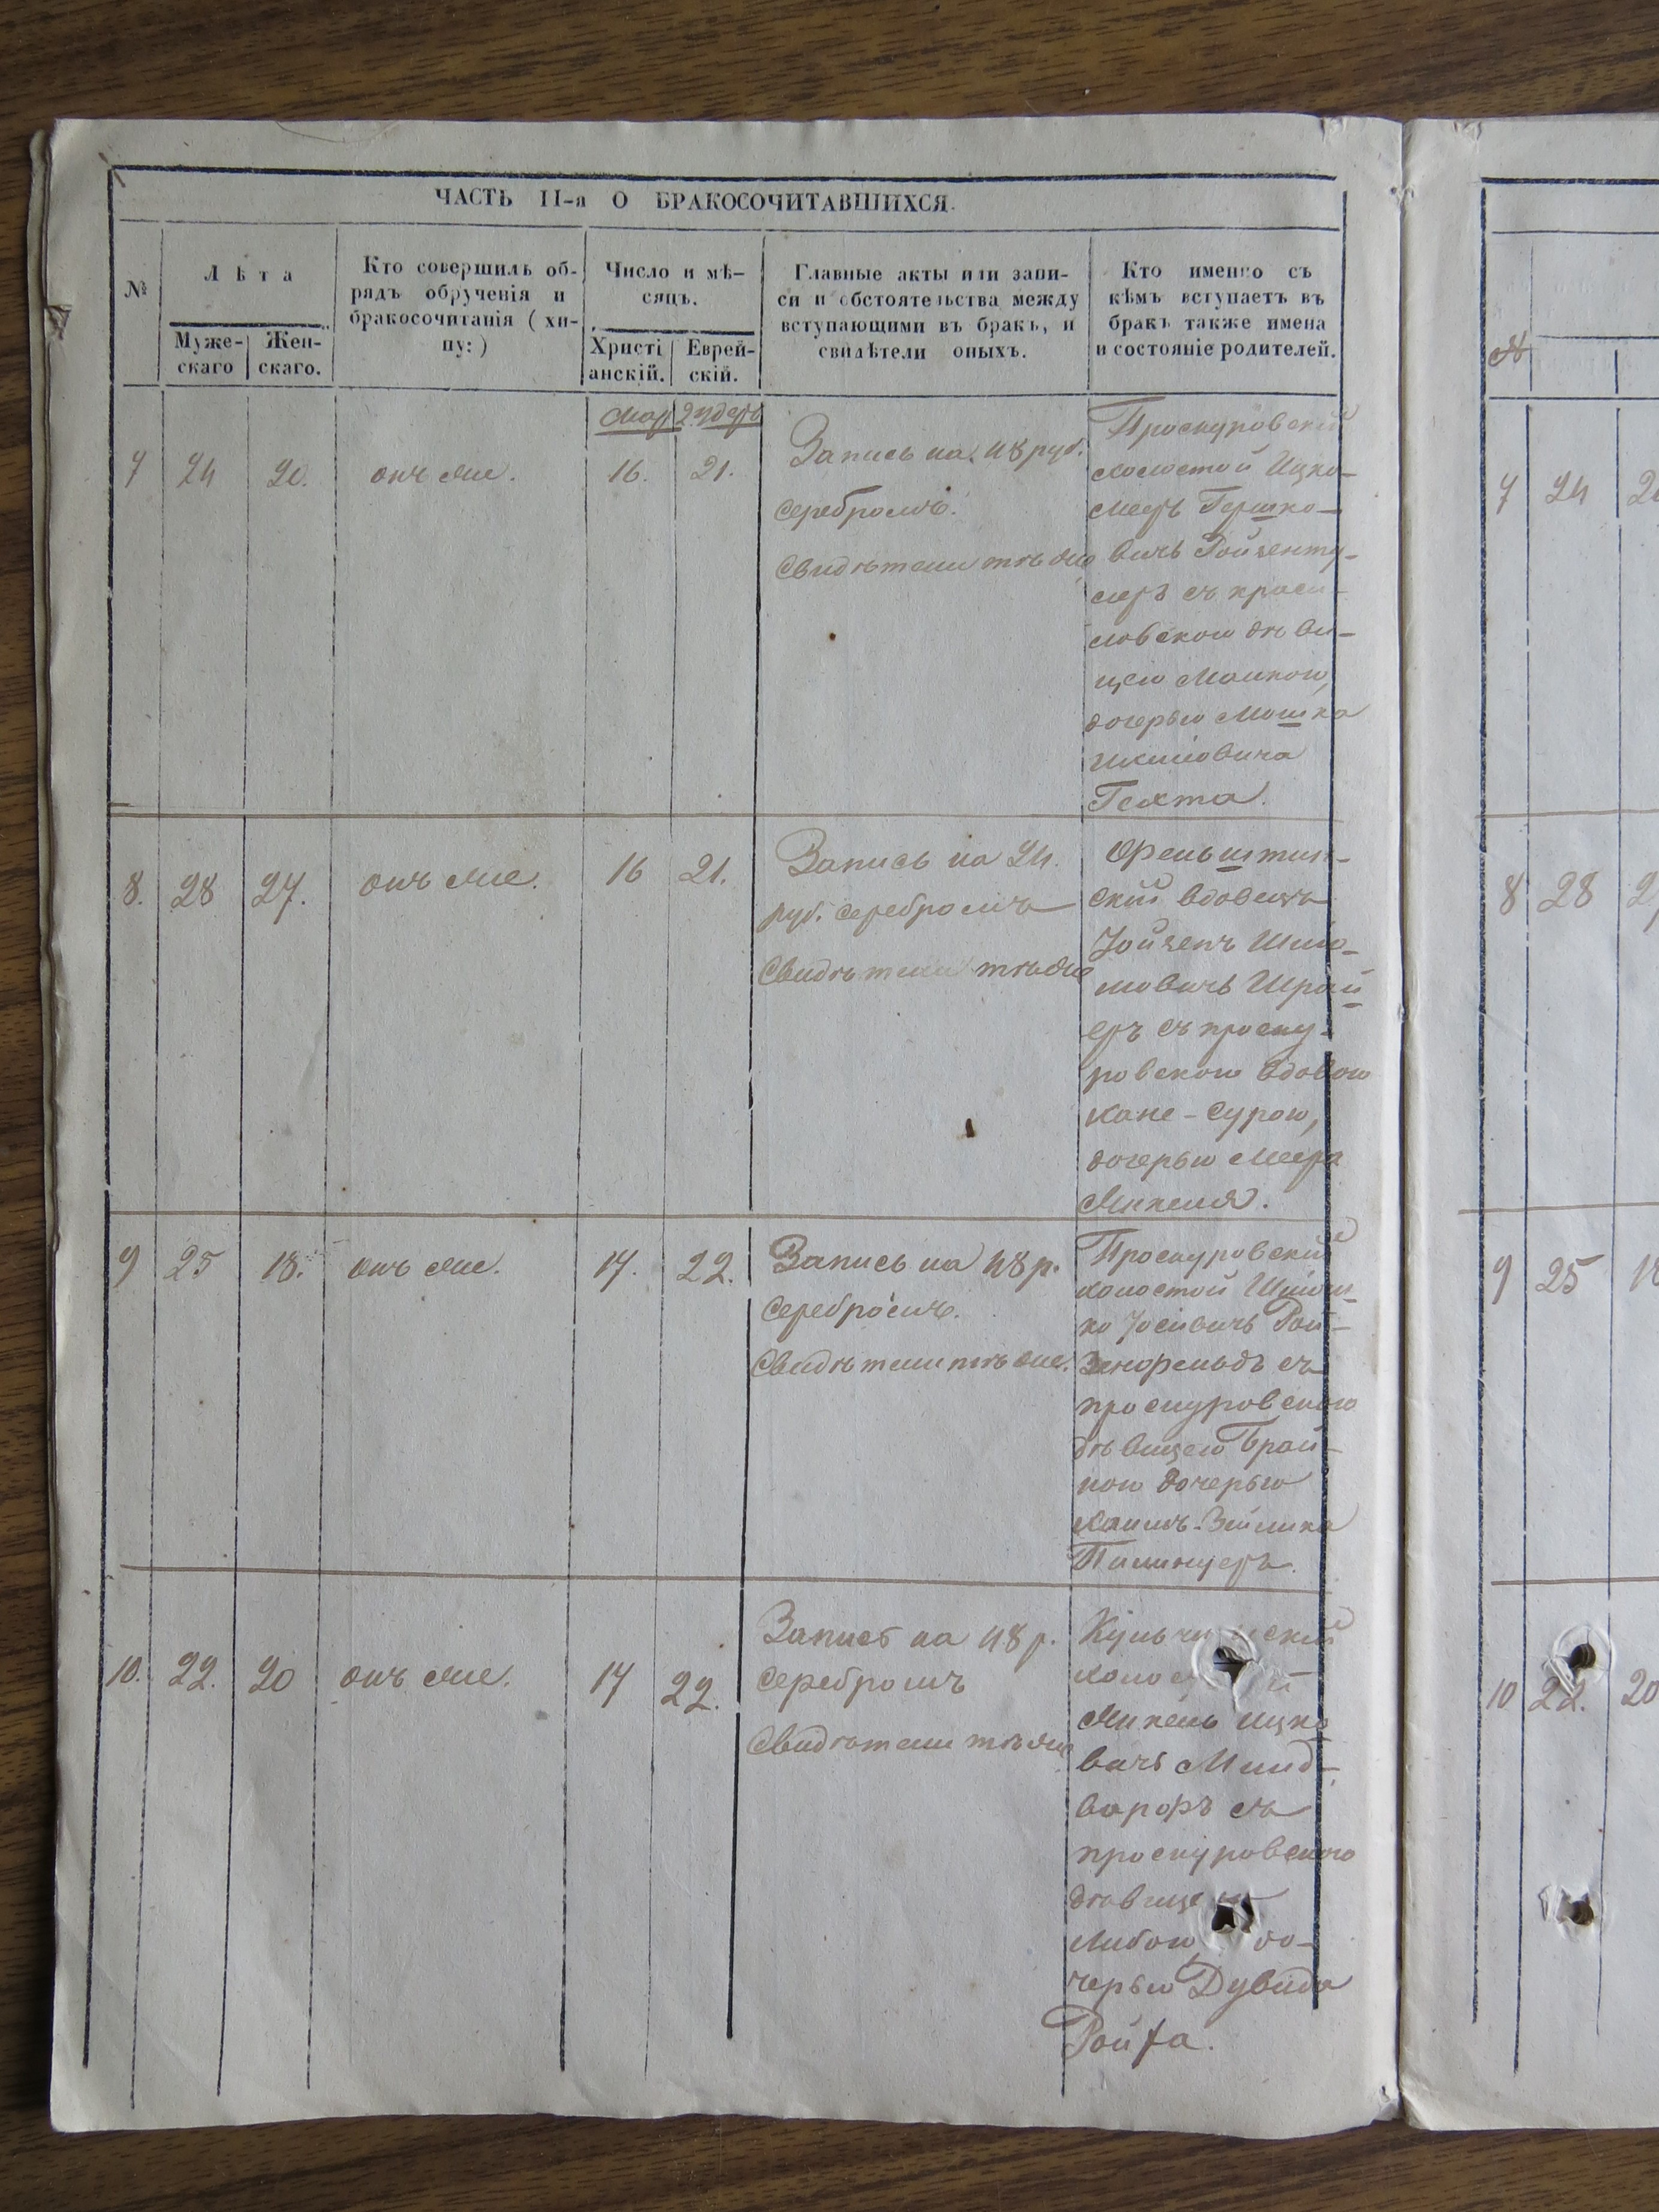 ЧАСТЬ II-я О БРАКОСОЧИТАВШИХСЯ.
№
Лѣта
Муже-
скаго
Жен-
скаго.
Кто совершилъ об-
рядъ обрученія и
бракосочитанія (хи-
пу:)
Число и мѣ-
сяцъ.
Христі
анскій.
Еврей-
скій.
Главные акты или запи-
си и обстоятельства между
вступающими въ бракъ, и
свидѣтели оныхъ.
Кто именно съ
кѣмъ вступаетъ въ
бракъ также имена
и состояніе родителей.
7 24 20. онъ же. 16. 21.
Запись на 48 руб.
серебромъ.
Свидѣтели тѣ же
Проскуровскій
холостой Ицко-
Мееръ Гершко-
вичъ Ройзенту-
леръ съ краси-
ловскою дѣви-
цею Малкою,
дочерью Мошка
Гехта.
8. 28 27. онъ же. 16 21.
Запись на 24.
руб. серебромъ
Свидѣтели тѣ же
ский вдовецъ
Іойзепъ Шмо-
ловичъ Шрай-
еръ съ проску-
ровскою вдовою
Хане-Сурою,
дочерью Меера
Микеля.
9 25 18. онъ же. 17. 22.
Запись на 48 р.
серебромъ.
Свидѣтели тѣ же.
Проскуровский
холостой Шмои-
ко Іосіовичъ Рой-
зенфельдъ съ
проскуровскою
дѣвицею Брай-
ною дочерью
Хаимъ-Зейлика
10. 22. 20 онъ же. 17 22.
Запись на 48 р.
серебромъ
Свидѣтели тѣ же
Микель Ицко
вичъ Милд-
ворфъ съ
проскуровскою
дѣвице
Либою до-
черью Дувида
Ройфа.
№
7 24
8 28
9 25
10 22. 20